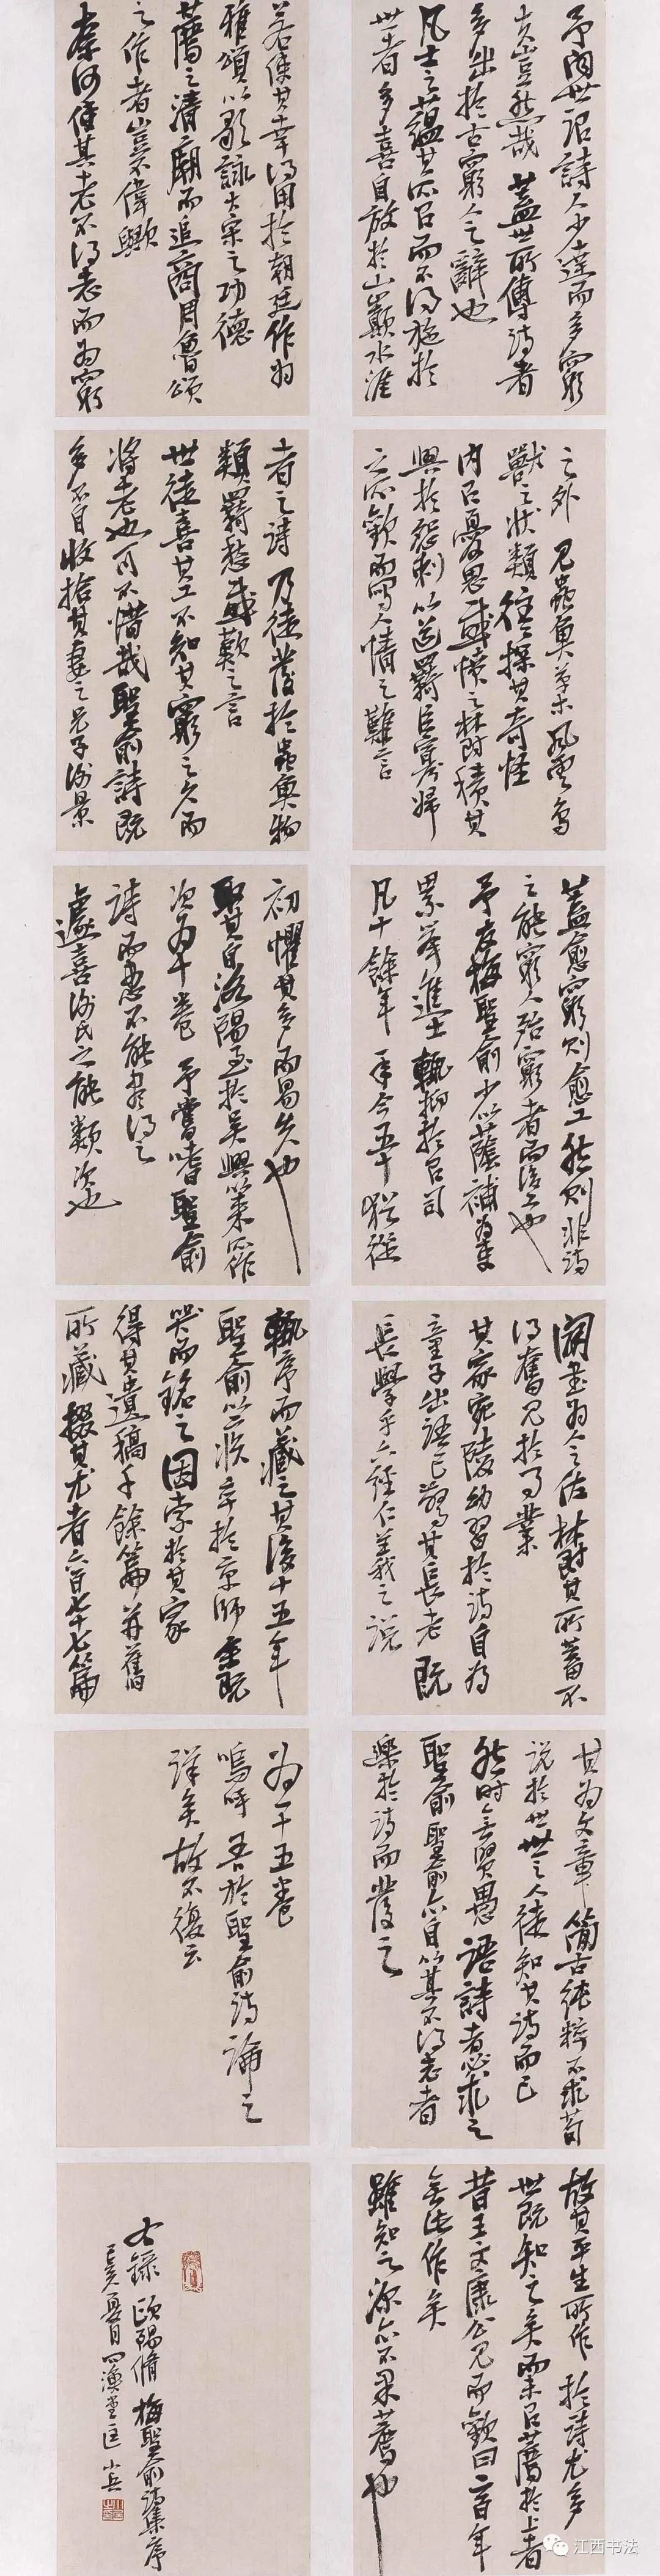 予聞世謂詩人少達而多窮
夫豈然哉 蓋世所傳詩者
多出於古窮人之辭也
凡士之蘊其所有而不得施於
世者多喜自放於山巔水涯
之外 見蟲魚草木風雲鳥
獸之狀類往往探其奇怪
内有憂思感憤之鬱積其
興於怨刺以道羈臣寡婦
之所歎而寫人情之難言
蓋愈窮則愈工然則非詩
之能窮人殆窮者而後工也
予友梅聖俞少以蔭補為吏
累舉進士輒抑於有司
凡十餘年 年今五十猶從
辟書為人之佐鬱其所蓄不
得奮見於事業
其家宛陵幼習於詩自為
童子出語已驚其長老既
長學乎六經仁義之說
其為文章簡古純粹不求苟
說於世世之人徒知其詩而已
然時無賢愚語詩者必求之
聖俞聖俞亦自以其不得志者
樂於詩而發之
故其平生所作於詩尤多
世既知之矣而未有薦於上者
昔王文康公見而歎曰二百年
無此作矣
雖知之深亦不果薦也
若使其幸得用於朝廷作為
雅頌以歌詠大宋之功德
薦之清廟而追商周魯頌
之作者豈不偉歟
奈何使其老不得志而為窮
者之詩 乃徒發於蟲魚物
類羈愁感歎之言
世徒喜其工不知其窮之久而
將老也可不惜哉聖俞詩既
多不自收拾其妻之兄子謝景
初懼其多而易失也
取其自洛陽至於吳興以來所作
次為十卷 予嘗嗜聖俞
詩而患不能盡得之
遽喜謝氏之能類次也
輒序而藏之其後十五年
聖俞以疾卒於京師余既
哭而銘之因索於其家
得其遺稿千餘篇并舊
所藏掇其尤者六百七十七篇
為一十五卷
嗚呼 吾於聖俞詩論之
詳矣故不復云
右錄 歐陽脩 梅聖俞詩集序
己亥夏月四漁堂匡小兵
江西书法